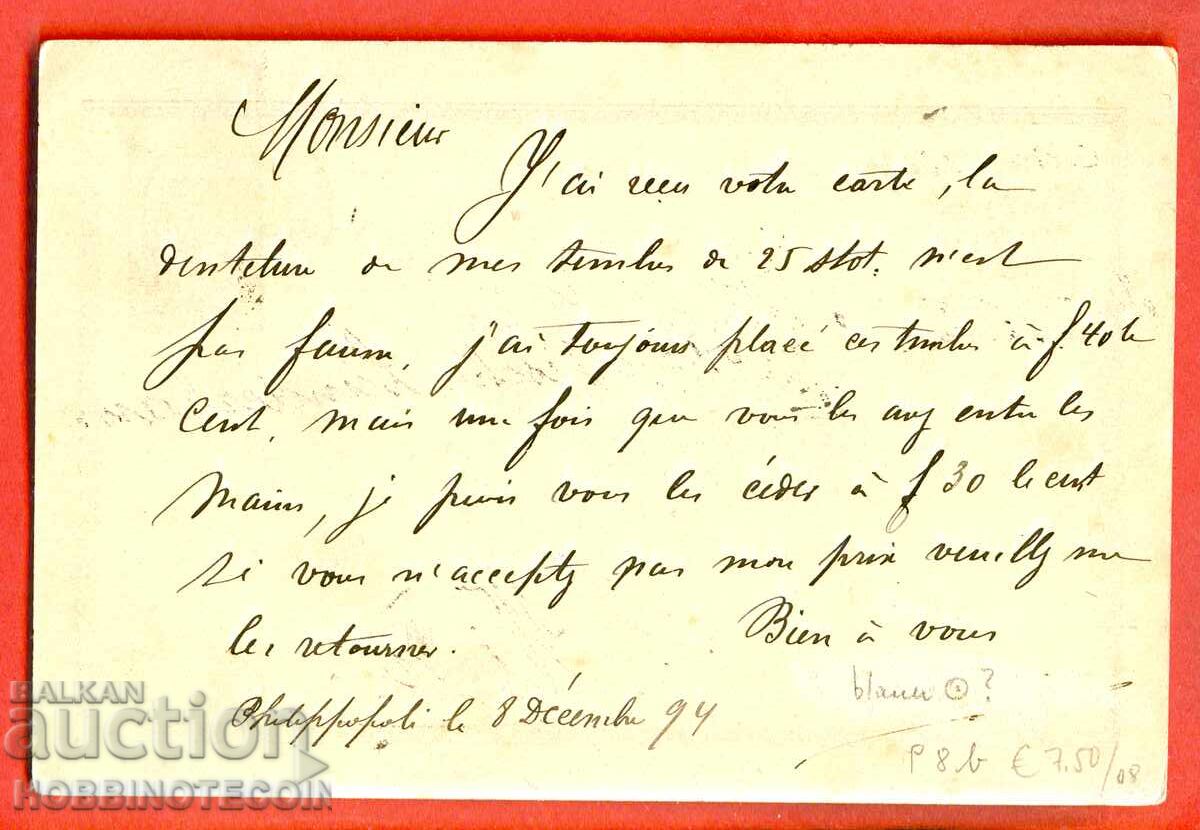 Monsieur
J'ai reçu votre carte, la
dentelure de mes timbres de 25 stot. n'est
pas fausse, j'ai toujours placé ces timbres à f. 40 le
cent, mais une fois que vous les avez entre les
mains, je puis vous les céder à f 30 le cent
si vous n'acceptez pas mon prix veuillez me
les retourner. Bien à vous
Philippopoli le 8 Décembre 94
?
P 8.b € 7.50/08
BALKAN
auction
HOBBINOTECOIN